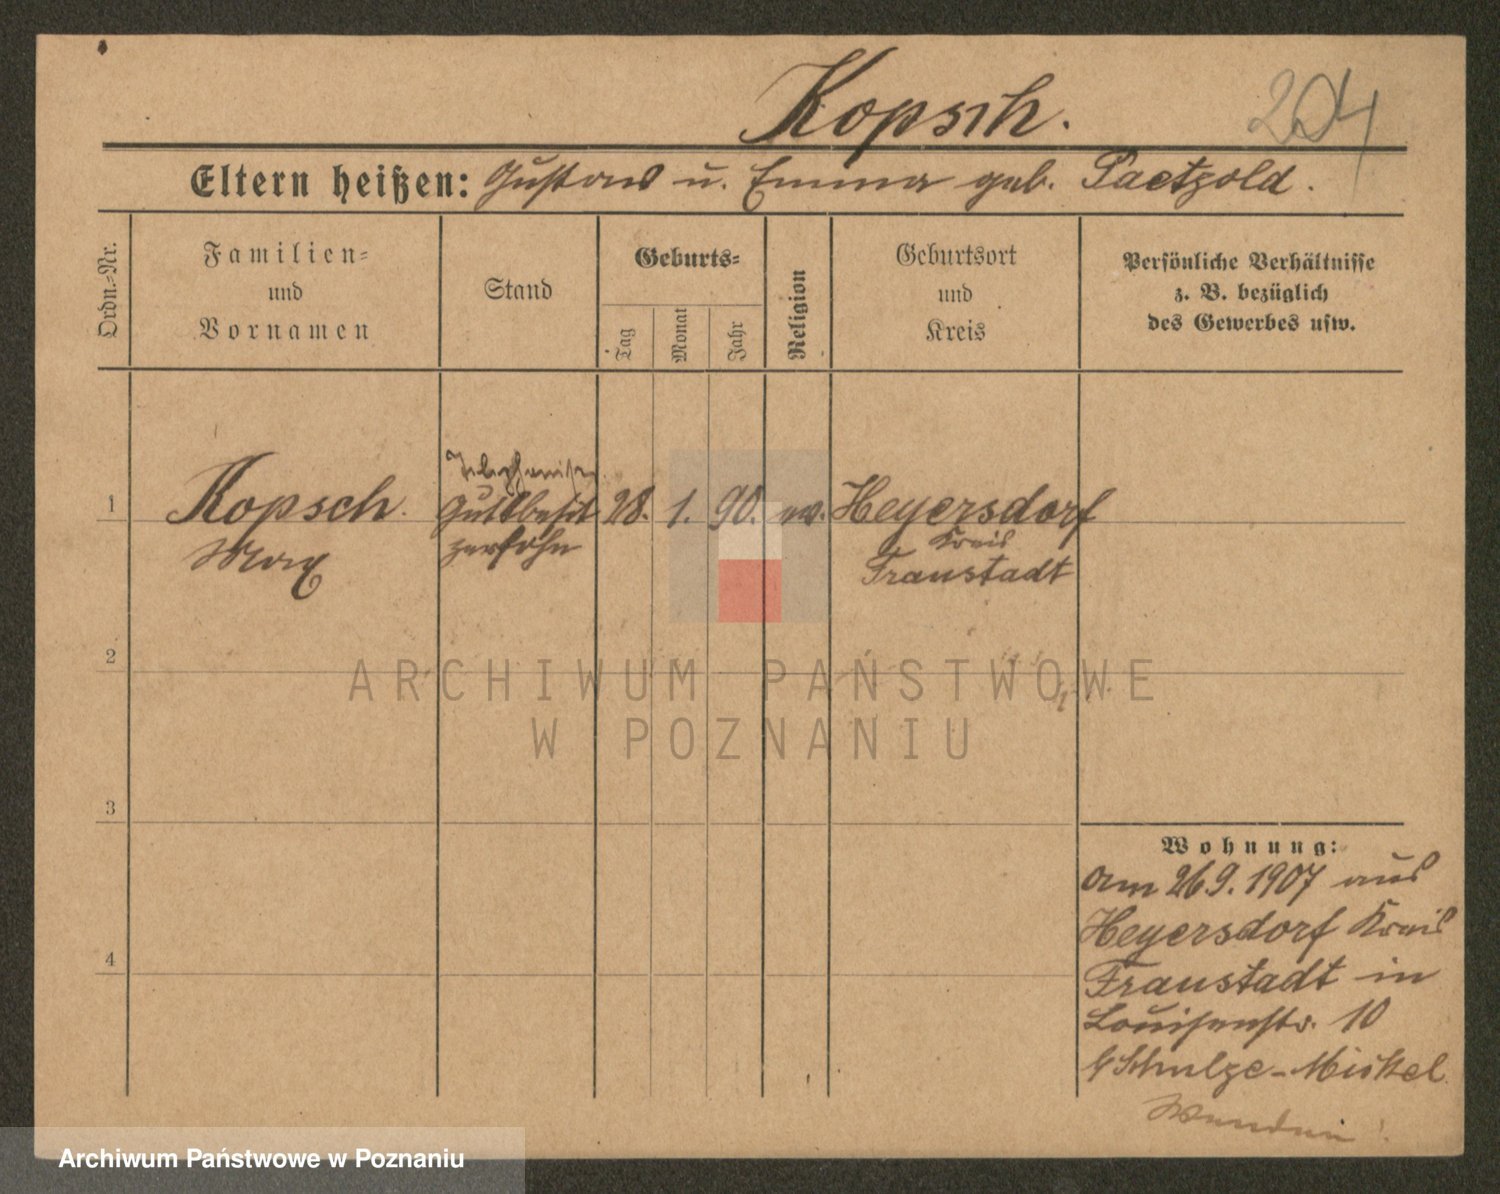 Kopsch.
204
Eltern heißen: Gustav u. Emma geb. Paetzold.
Ordn.-Nr.
Familien-
und
Vornamen
Stand
Geburts-
Tag
Monat
Jahr
Religion
Geburtsort
und
Kreis
Persönliche Verhältnisse
z. B. bezüglich
des Gewerbes usw.
1
Kopsch.
Max
Gutsbesit
zersohn
28. 1. 90. ev.
Heyersdorf
Kreis
Fraustadt
2
3
4
Wohnung:
am 26.9.1907 aus
Heyersdorf Kreis
Fraustadt in
Louisenstr. 10
b/ Schulze-
ARCHIWUM PAŃSTWOWE
W POZNANIU
Archiwum Państwowe w Poznaniu